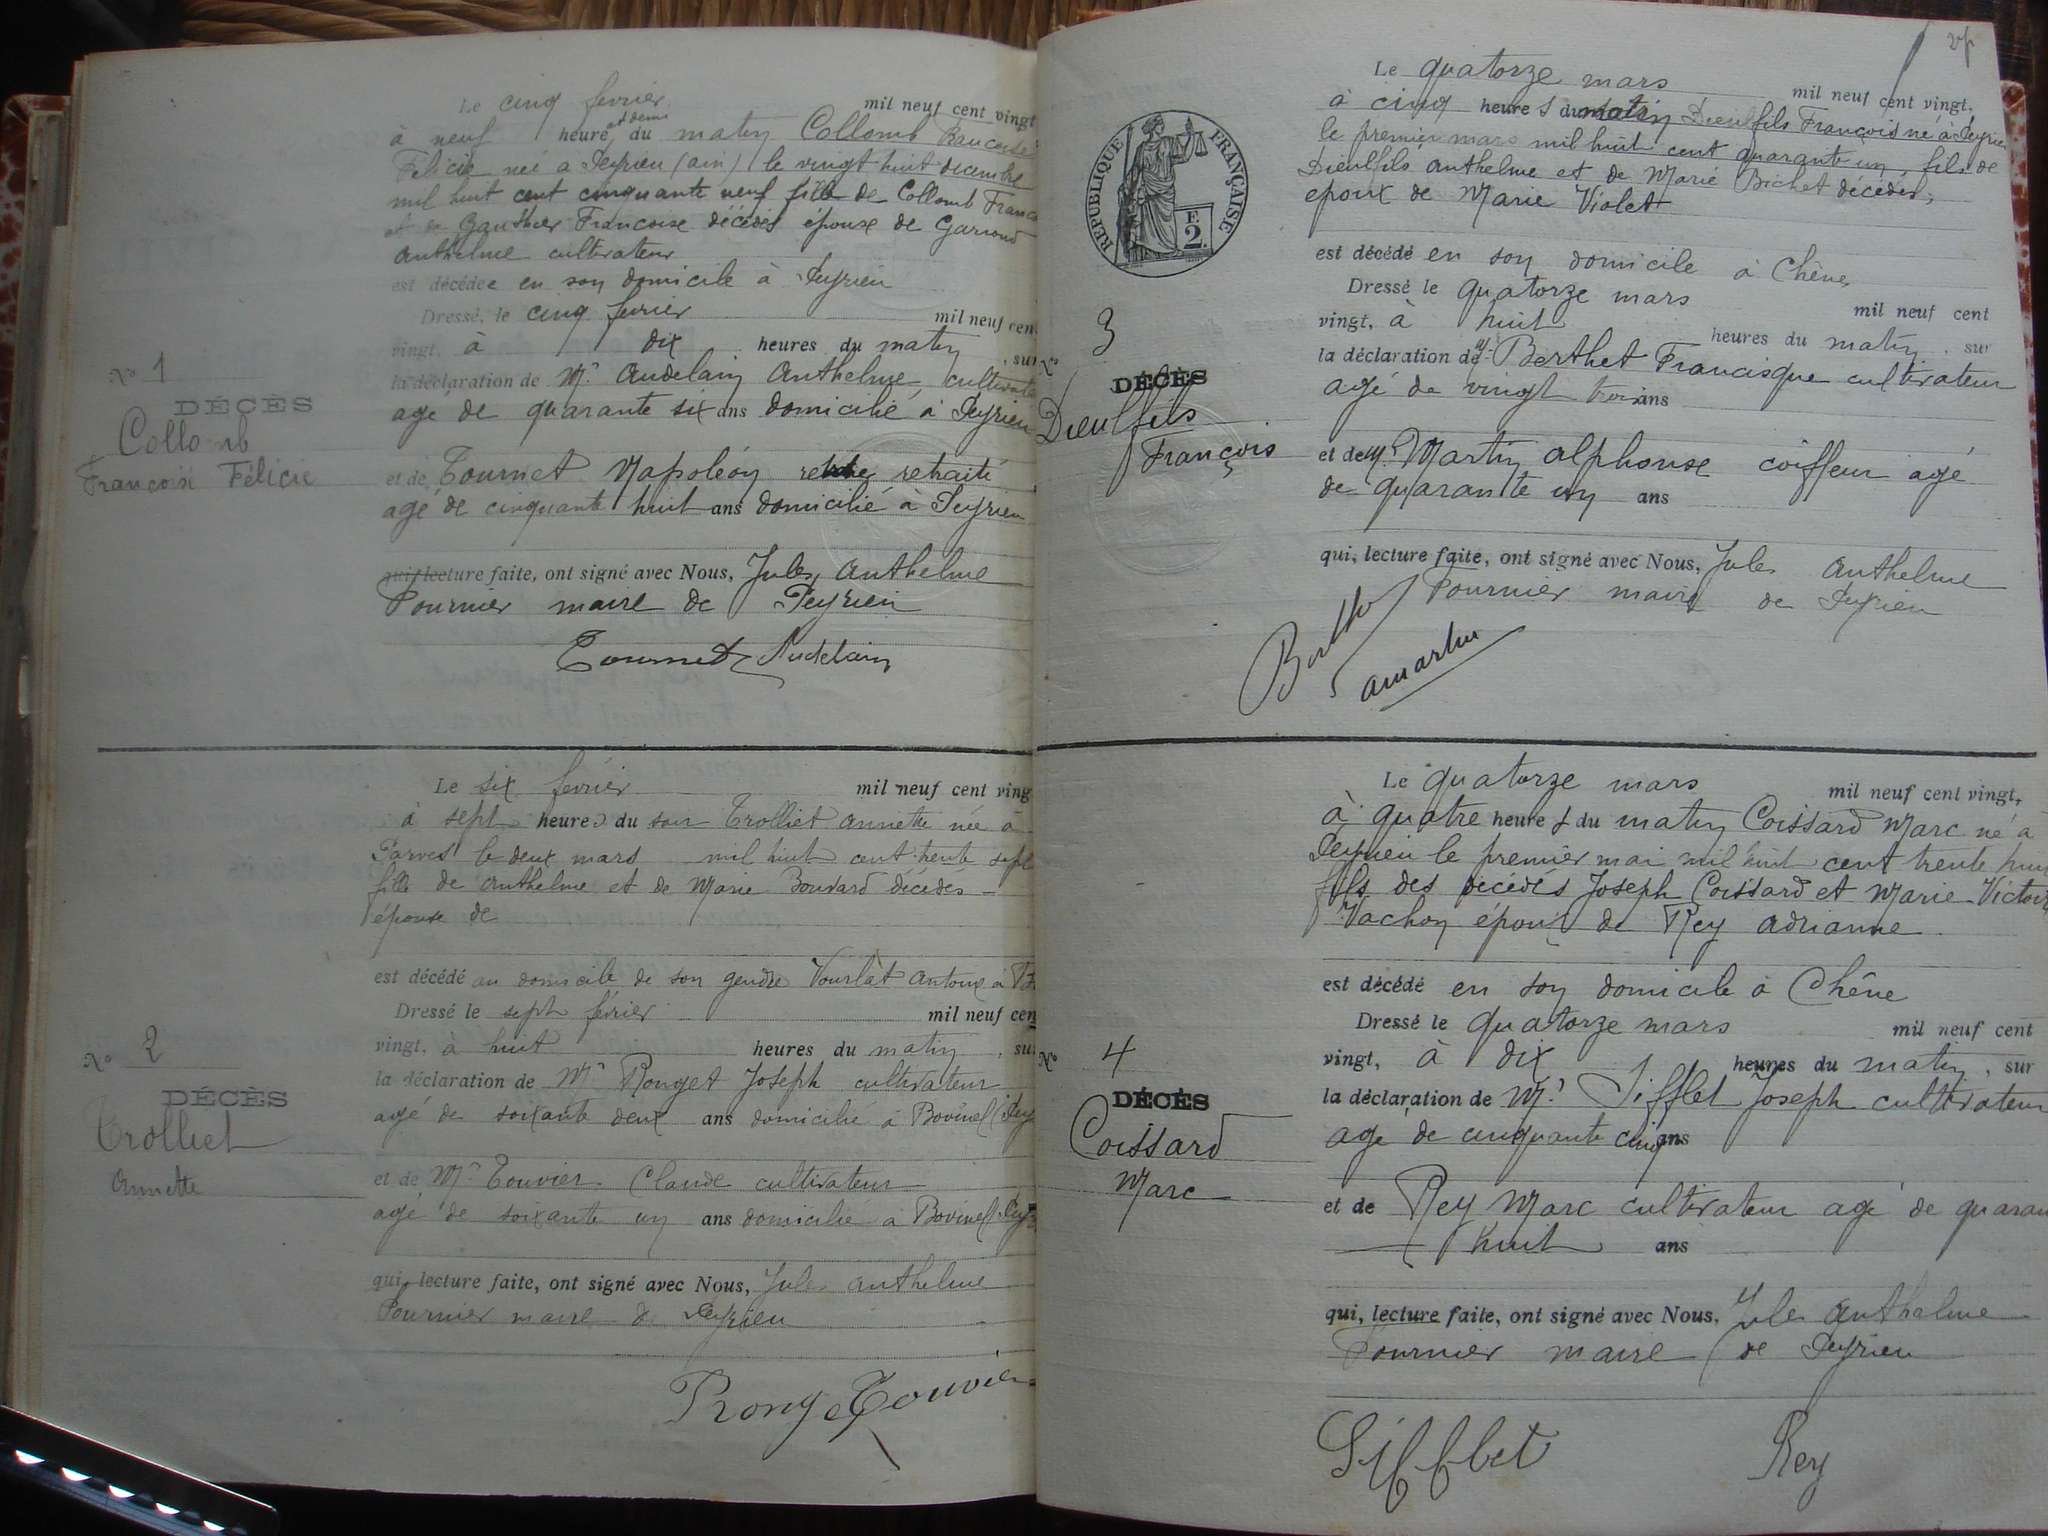 Le cinq février mil neuf cent vingt
à neuf heure et demi du matin Collomb Francoise
Félicie née à Peyrieu (ain) le vingt huit décembre
mil huit cent cinquante neuf fille de Collomb Franco
et de Gauthier Francoise décédés épouse de Garioud
Anthelme cultivateur
est décédée en son domicile à Peyrieu
Dressé, le cinq février mil neuf cen
vingt, à dix heures du matin, sur
la déclaration de Mr. Audelain Anthelme, cultivate
agé de quarante six ans domicilié à Peyrieu
et de Tournet Napoléon retraité
agé de cinquante huit ans domicilié à Peyrieu
qui, lecture faite, ont signé avec Nous, Jules, Anthelme
Fournier maire de Peyrieu
Tournet Audelain
No 1
DÉCÈS
Collomb
Francoise Félicie
Le six février mil neuf cent ving
à sept heures du soir Trolliet Annette née à
Parves le deux mars mil huit cent trente sept
fille de Anthelme et de Marie Bouvard décédés
épouse de
est décédé au domicile de son gendre Vourlat Antoine à
Dressé le sept février mil neuf cen
vingt, à huit heures du matin, su
la déclaration de Mr Rouget Joseph cultivateur
agé de soixante deux ans domicilié à Bovinel (Pey
et de Mr Touvier Claude cultivateur
agé de soixante un ans domicilié à Bovinel (Pey
qui, lecture faite, ont signé avec Nous, Jules Anthelme
Fournier maire de Peyrieu
Rouget Touvier
No 2
DÉCÈS
Trolliet
Annette
Le quatorze mars mil neuf cent vingt,
à cinq heures du matin Dieulfils François né à Peyrieu
le premier mars mil huit cent quarante un fils de
Dieulfils Anthelme et de Marie Bichet décédés,
epoux de Marie Violet
est décédé en son domicile à Chêne
Dressé le quatorze mars mil neuf cent
vingt, à huit heures du matin, sur
la déclaration de Mr. Berthet Francisque cultivateur
agé de vingt trois ans
et de Mr. Martin alphonse coiffeur agé
de quarante un ans
qui, lecture faite, ont signé avec Nous, Jules Anthelme
Fournier maire de Peyrieu
Berthet
amartin
RÉPUBLIQUE FRANÇAISE
F.
2.
No 3
DÉCÈS
Dieulfils
François
Le quatorze mars mil neuf cent vingt,
à quatre heures du matin Coissard Marc né à
Peyrieu le premier mai mil huit cent trente hui
fils des décédés Joseph Coissard et Marie Victoir
Vachon époux de Rey Adrianne
est décédé en son domicile à Chêne
Dressé le quatorze mars mil neuf cent
vingt, à dix heures du matin, sur
la déclaration de Mr. Sifflet Joseph cultivateur
agé de cinquante cinq ans
et de Rey Marc cultivateur agé de quaran
huit ans
qui, lecture faite, ont signé avec Nous, Jules Anthelme
Fournier maire de Peyrieu
Sifflet Rey
No 4
DÉCÈS
Coissard
Marc